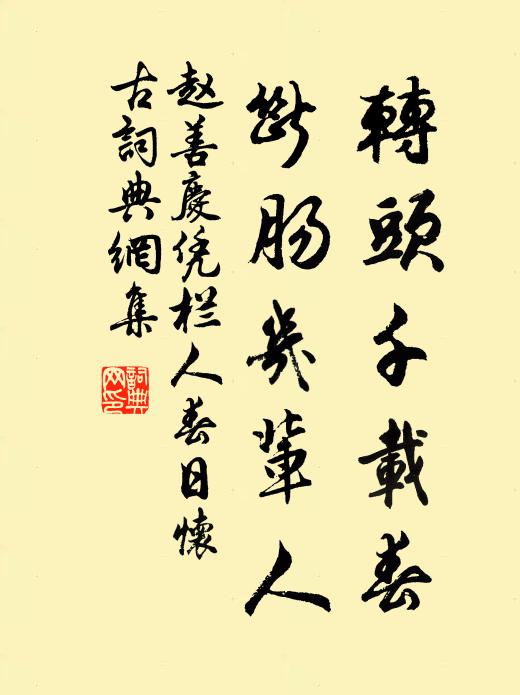 轉頭千載春
斷腸幾輩人
赵善慶凭栏人春日懷
古詞典網集
詞典
网印